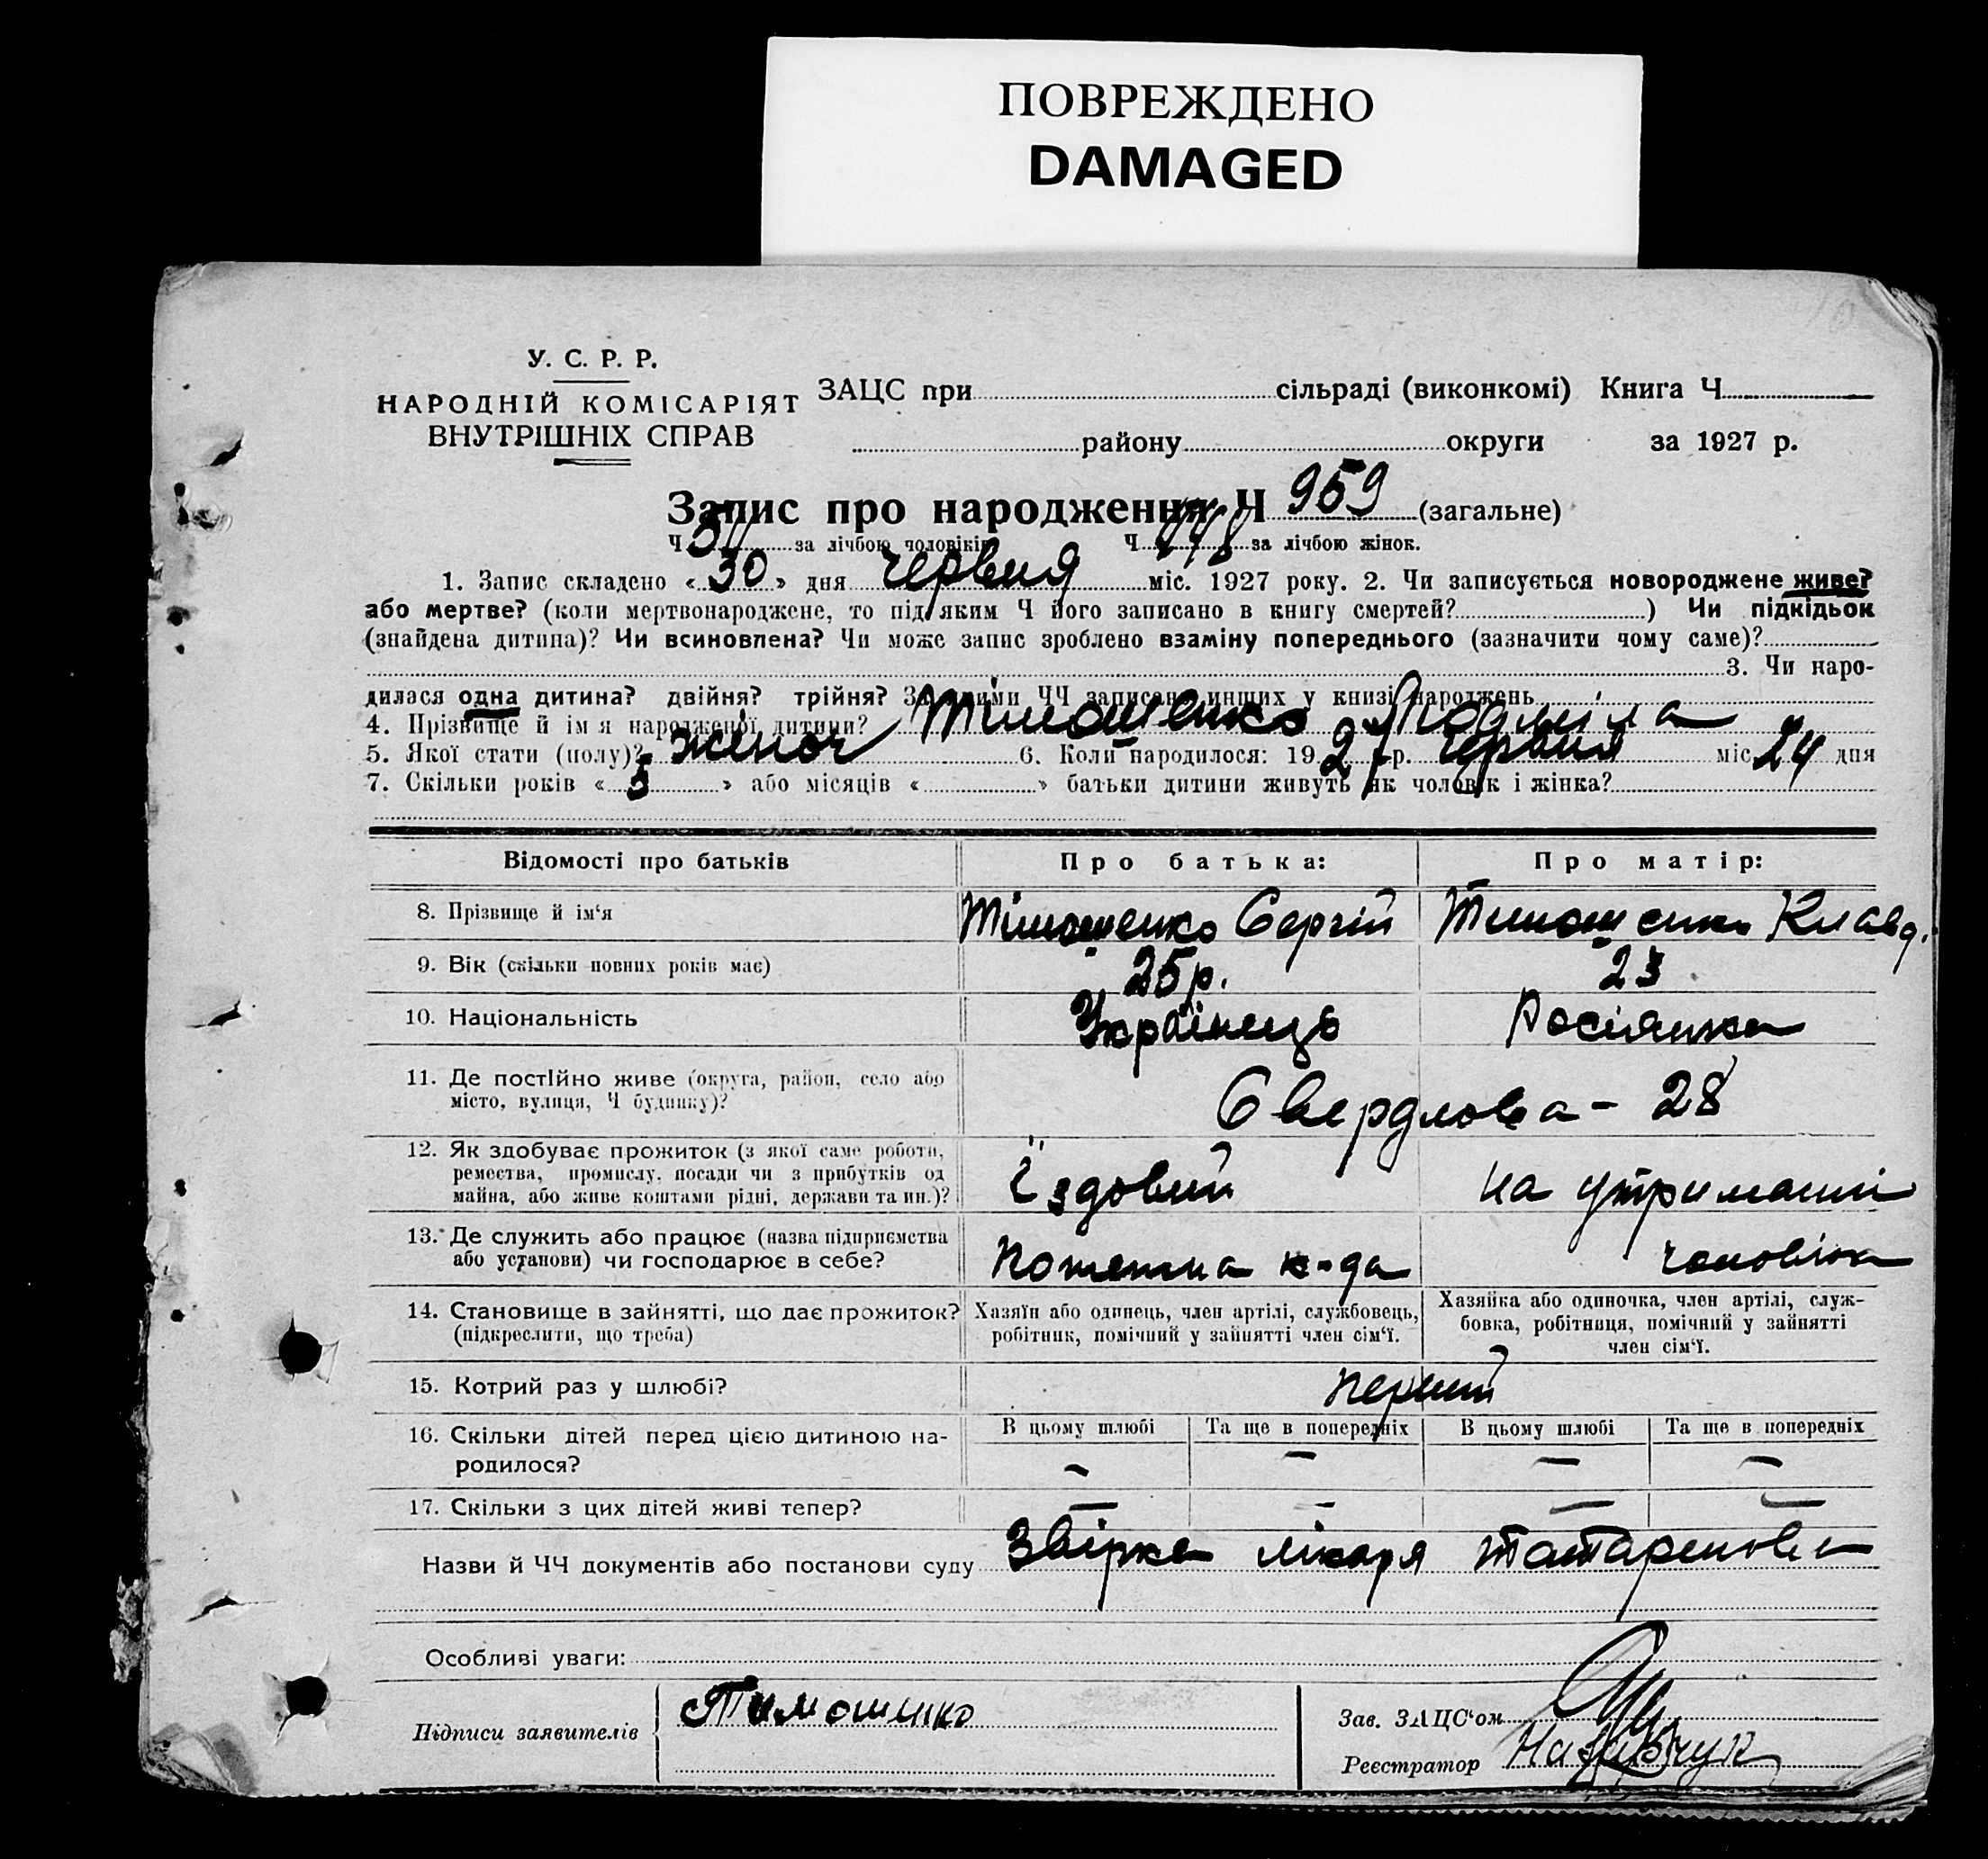 ПОВРЕЖДЕНО
DAMAGED
У. С. Р. Р.
НАРОДНІЙ КОМІСАРІЯТ
ВНУТРІШНІХ СПРАВ
ЗАЦС при сільраді (виконкомі) Книга Ч
району округи за 1927 р.
Запис про народження Ч 959 (загальне)
Ч за лічбою чоловіків Ч за лічбою жінок.
1. Запис складено « 30 » дня червня міс. 1927 року. 2. Чи записується новороджене живе?
або мертве? (коли мертвонароджене, то під яким Ч його записано в книгу смертей? ) Чи підкідьок
(знайдена дитина)? Чи всиновлена? Чи може запис зроблено взаміну попереднього (зазначити чому саме)?
3. Чи наро-
дилася одна дитина? двійня? трійня? За якими ЧЧ записано инших у книзі народжень
4. Прізвище й ім я народженої дитини? Тімошенко Людміла
5. Якої стати (полу)? жіноч 6. Коли народилося: 19 27 р. червня міс. 24 дня
7. Скільки років « 5 » або місяців « » батьки дитини живуть як чоловік і жінка?
Відомості про батьків Про батька: Про матір:
8. Прізвище й ім‘я Тімошенко Сергій Тимошенко Клавд.
9. Вік (скільки повних років має) 25 р. 23
10. Національність Українець Росіянка
11. Де постійно живе (округа, район, село або
місто, вулиця, Ч будинку)? Свердлова - 28
12. Як здобуває прожиток (з якої саме роботи,
ремества, промислу, посади чи з прибутків од
майна, або живе коштами рідні, держави та ин.)? Їздовий на утриманні
13. Де служить або працює (назва підприємства
або установи) чи господарює в себе? к-да чоловіка
14. Становище в зайнятті, що дає прожиток?
(підкреслити, що треба)
Хазяїн або одинець, член артілі, службовець,
робітник, помічний у зайнятті член сім‘ї.
Хазяйка або одиночка, член артілі, служ-
бовка, робітниця, помічний у зайнятті
член сім‘ї.
15. Котрий раз у шлюбі? перший
16. Скільки дітей перед цією дитиною на-
родилося?
В цьому шлюбі Та ще в попередніх В цьому шлюбі Та ще в попередніх
— — — —
17. Скільки з цих дітей живі тепер? — — — —
Назви й ЧЧ документів або постанови суду Звірка лікаря Татаренова
Особливі уваги:
Підписи заявителів Тимошенко
Зав. ЗАЦС‘ом
Реєстратор Назарчук